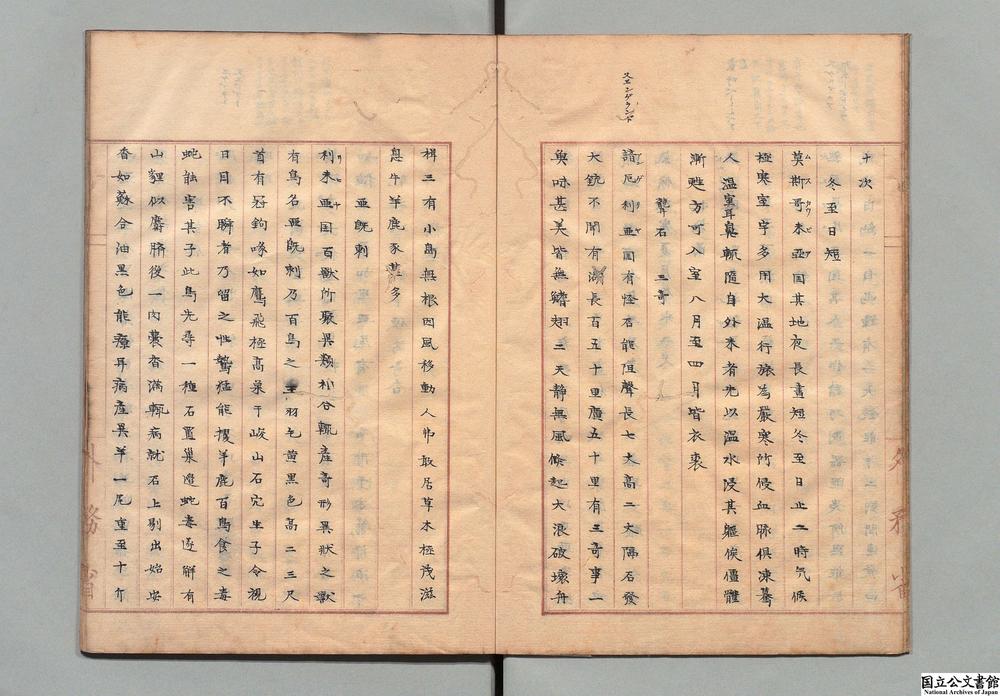 十次
冬至日短
莫斯哥未亞国其地夜長晝短冬至日止二時気候
ムスカウビア
極寒室宇多用大温行旅為嚴寒所侵血脉倶凍驀
人温室耳鼻輒隨自外来者先以温水浸其軀俟僵體
漸甦方可入室八月至四月皆衣裘
聾石 三奇
スエンゲランド
諳厄利亜国有怪石能阻聲長七丈高二丈隔石發
大銃不聞有湖長百五十里廣五十里有三奇事一
魚味甚美皆無鰭翅二天静無風倏起大浪破壊舟
楫三有小島無根因風移動人弗敢居草木極茂滋
息牛羊鹿豕甚多
亜既剌
利未亜国百獣所聚異類朴谷輒産奇形異状之獣
有鳥名亜既剌乃百鳥之王羽毛黄黒色高二三尺
首有冠鉤喙如鷹飛極高巣于峻山石穴生子令視
日目不瞬者乃留之性鷙猛能攫羊鹿百鳥食之毒
蛇能害其子此鳥先尋一種石置巣邊蛇毒遂解有
山狸似麝臍後一肉嚢香満輒病就石上剔出始安
香如蘇合油黒色能療耳病産異羊一尾重至十斤
外務省
外務省
国立公文書館
National Archives of Japan